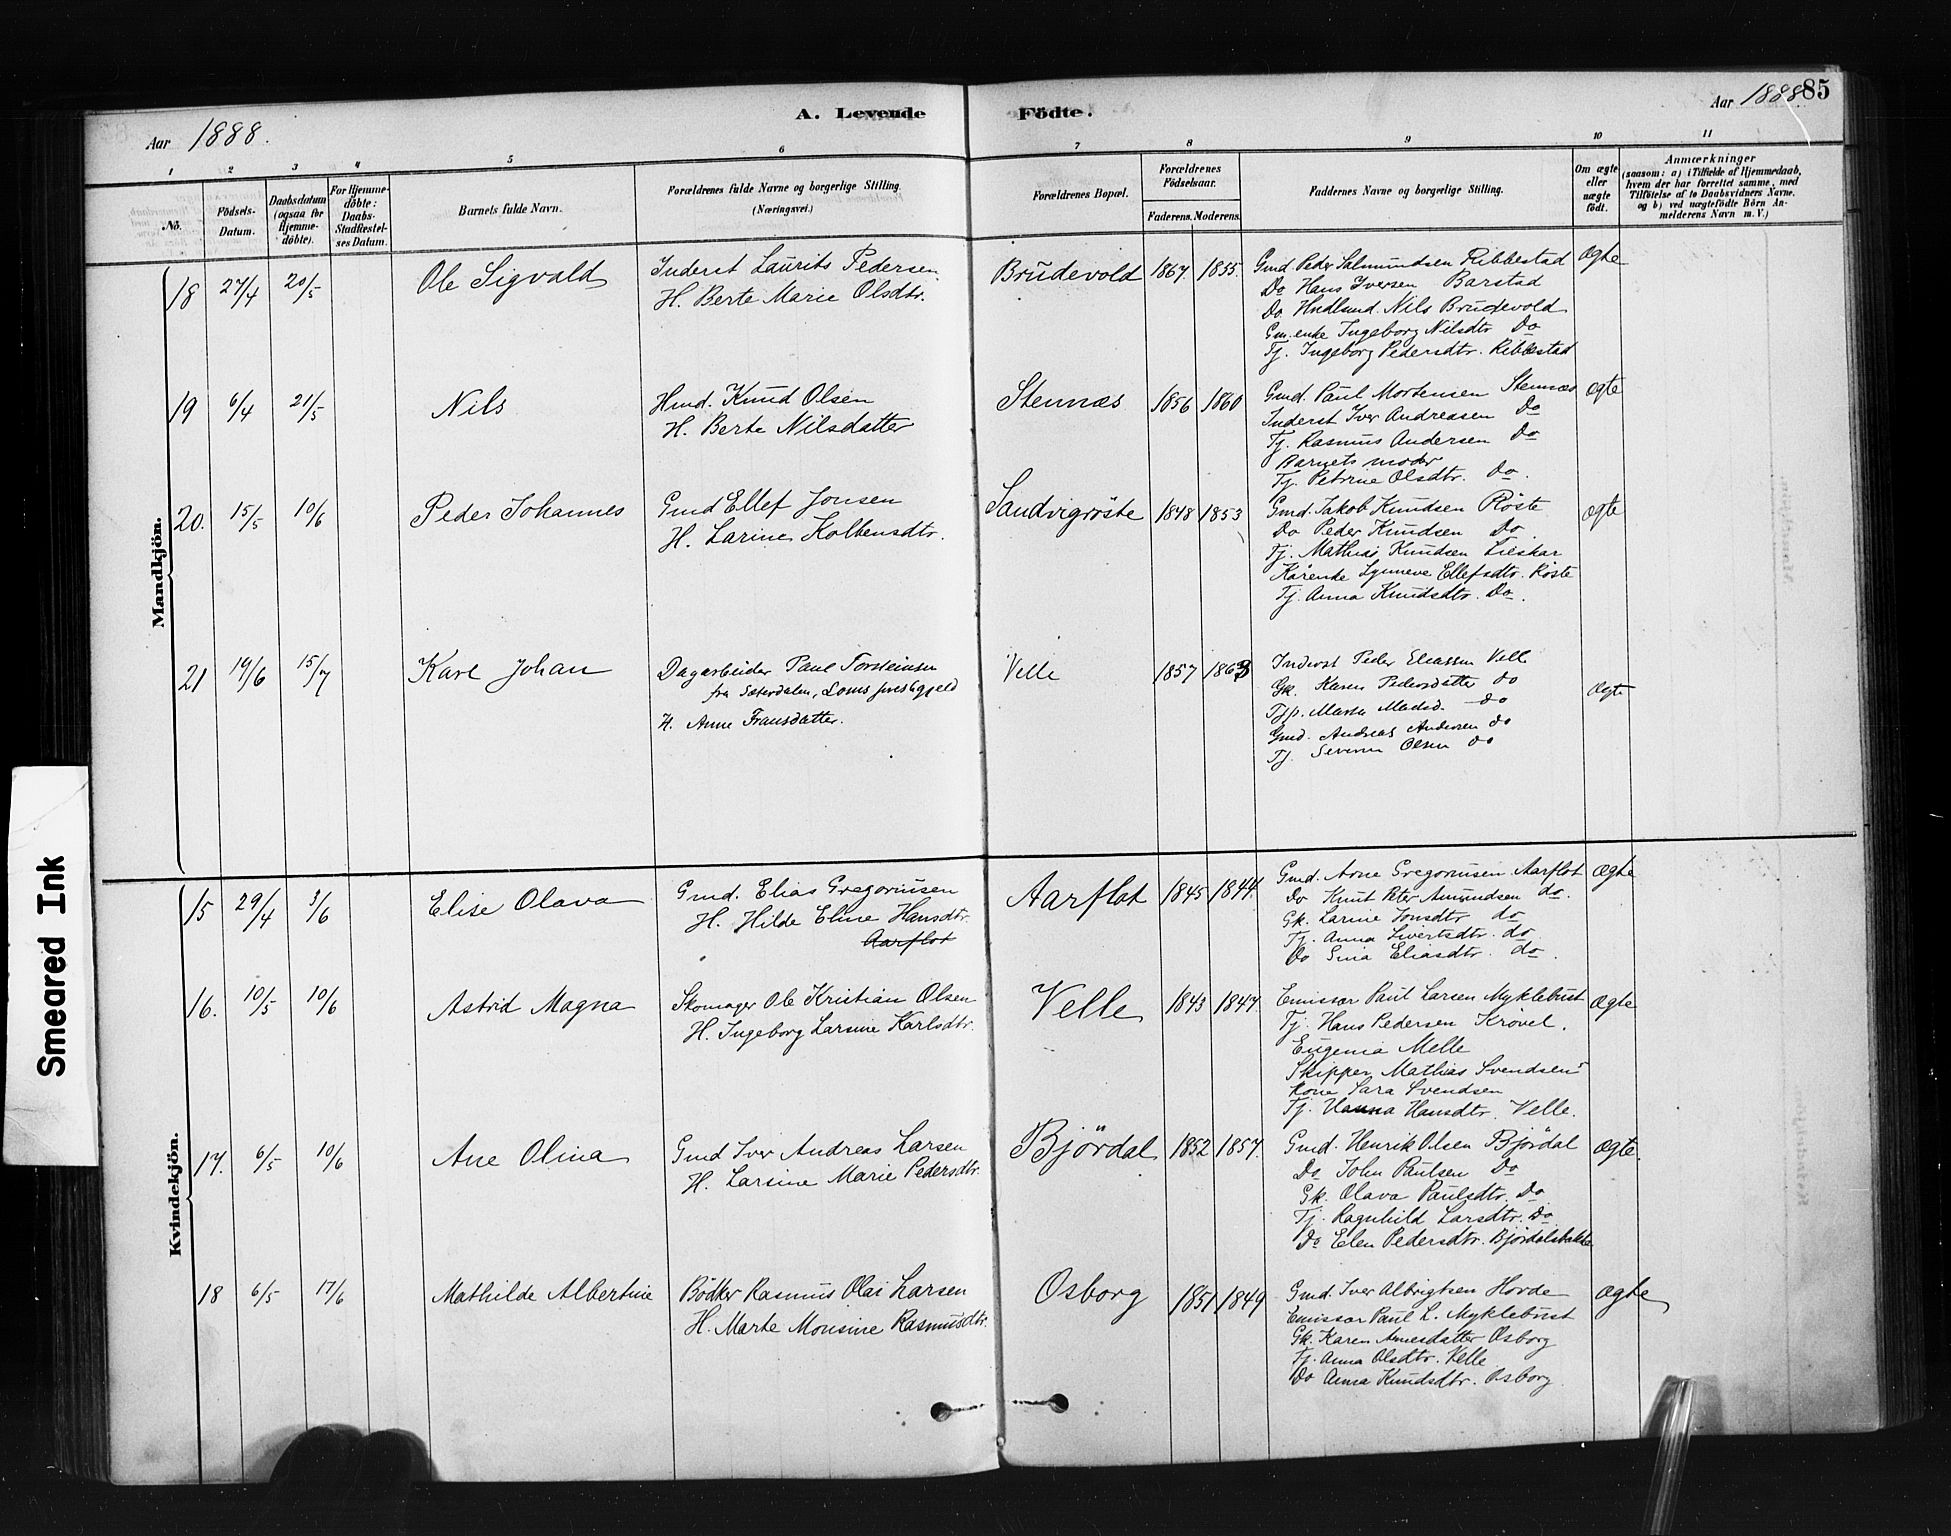 A. Levende Födte.
85
Aar 1888.
Aar 1888.
1 2 3 4 5 6 7 8 9 10 11
No.
Födsels-Datum.
Daabsdatum (ogsaa for Hjemme-döbte).
For Hjemme-döbte: Daabs-Stadfæstel-ses Datum.
Barnets fulde Navn.
Forældrenes fulde Navne og borgerlige Stilling. (Næringsvei.)
Forældrenes Bopæl.
Forældrenes Födselsaar.
Faderens. Moderens.
Faddernes Navne og borgerlige Stilling.
Om ægte eller uægte födt.
Anmærkninger (saasom: a) i Tilfælde af Hjemmedaab, hvem der har forrettet samme, med Tilföielse af to Daabsvidners Navne, og b) ved uægtefödte Börn An-melderens Navn m. V.)
Mandkjön.
18 27/4 20/5 Ole Sigvald
Inderst Laurits Pedersen
H. Berte Marie Olsdtr.
Brudevold 1867. 1855.
Gmd. Peder Salmundsen Ribbestad
Do Hans Iversen Barstad
Do. Nils Brudevold
Gm.enke Ingeborg Nilsdtr Do
Tj. Ingeborg Pedersdtr. Ribbestad
Ægte
19 6/4 21/5 Nils
Hmd. Knud Olsen
H. Berte Nilsdatter
Stennæs 1856 1860
Gmd. Paul Mortensen Stennæs
Inderst Iver Andreasen Do
Tj. Rasmus Andersen Do
Barnets moder
Tj. Petrine Olsdtr. Do.
ægte
20. 15/5 10/6 Peder Johannes
Gmd Ellef Jonsen
H. Larine Kolbensdtr.
Sandvigröste 1848 1853
Gmd. Jakob Knudsen Röste
Do Peder Knudsen Do.
Tj. Mathias Knudsen Lieskar
Kårenke Synneve Ellefsdtr. Röste
Tj. Anna Knudsdtr. Do.
ægte
21 19/6 15/7 Karl Johan
Dagarbeider Paul Torsteinsen
fra Sæterdalen, Loms prestegjeld
H. Anne Fransdatter.
Velle 1857 1863
Inderst Peder Eliassen Velle
Gk. Karen Pedersdatter do
Tjp. Marta Madsd. do
Gmd. Andreas Andersen do
Tj. Severin Olsen do
ægte
Kvindekjön.
15 29/4 3/6 Elise Olava
Gmd. Elias Gregoriusen
H. Hilde Eline Hansdtr.
Aarflot
Aarflot 1845 1844.
Gmd. Arne Gregoriusen Aarflot
Do Knut Peter Amundsen do.
Gk. Larine Jonsdtr do
Tj. Anna Sivertsdtr. do.
Do Sina Eliasdtr. do.
Ægte
16. 10/5 10/6 Astrid Magna
Skomager Ole Kristian Olsen
H. Ingeborg Larsine Karlsdtr.
Velle 1843 1847.
Emissær Paul Larsen Myklebust
Tj. Hans Pedersen Krövel.
Eugenia Melle
Skipper Mathias Svendsens
kone Sara Svendsen
Tj. Hanna Hansdtr. Velle.
Ægte
17. 6/5 10/6 Ane Olina
Gmd Iver Andreas Larsen
H. Larsine Marie Pedersdtr.
Björdal 1852 1857.
Gmd. Henrik Olsen Björdal
Do John Paulsen Do
Gk. Olava Paulsdtr. Do
Tj. Ragnhild Larsdtr. Do
Do Elen Pedersdtr. Björdalsbakke
ægte.
18 6/5 17/6 Mathilde Albertine
Bödker Rasmus Olai Larsen
H. Marte Monsine Rasmusdtr.
Osborg 1851 1849
Gmd. Iver Albrigtsen Hovde
Emissær Paul L. Myklebust
Gk. Karen Arnesdatter Osborg
Tj. Anna Olsdtr. Velle
Do Anna Knudsdtr. Osborg
Ægte
Smeared Ink